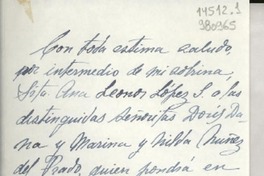 14512.1
980965
Con toda estima saludo,
por intermedio de mi sobrina,
Srta. Ana Leonor López S. a las
distinguidas Señoritas Doris Da-
na y Marina y Nilda Núñez
del Prado, quien pondrá en